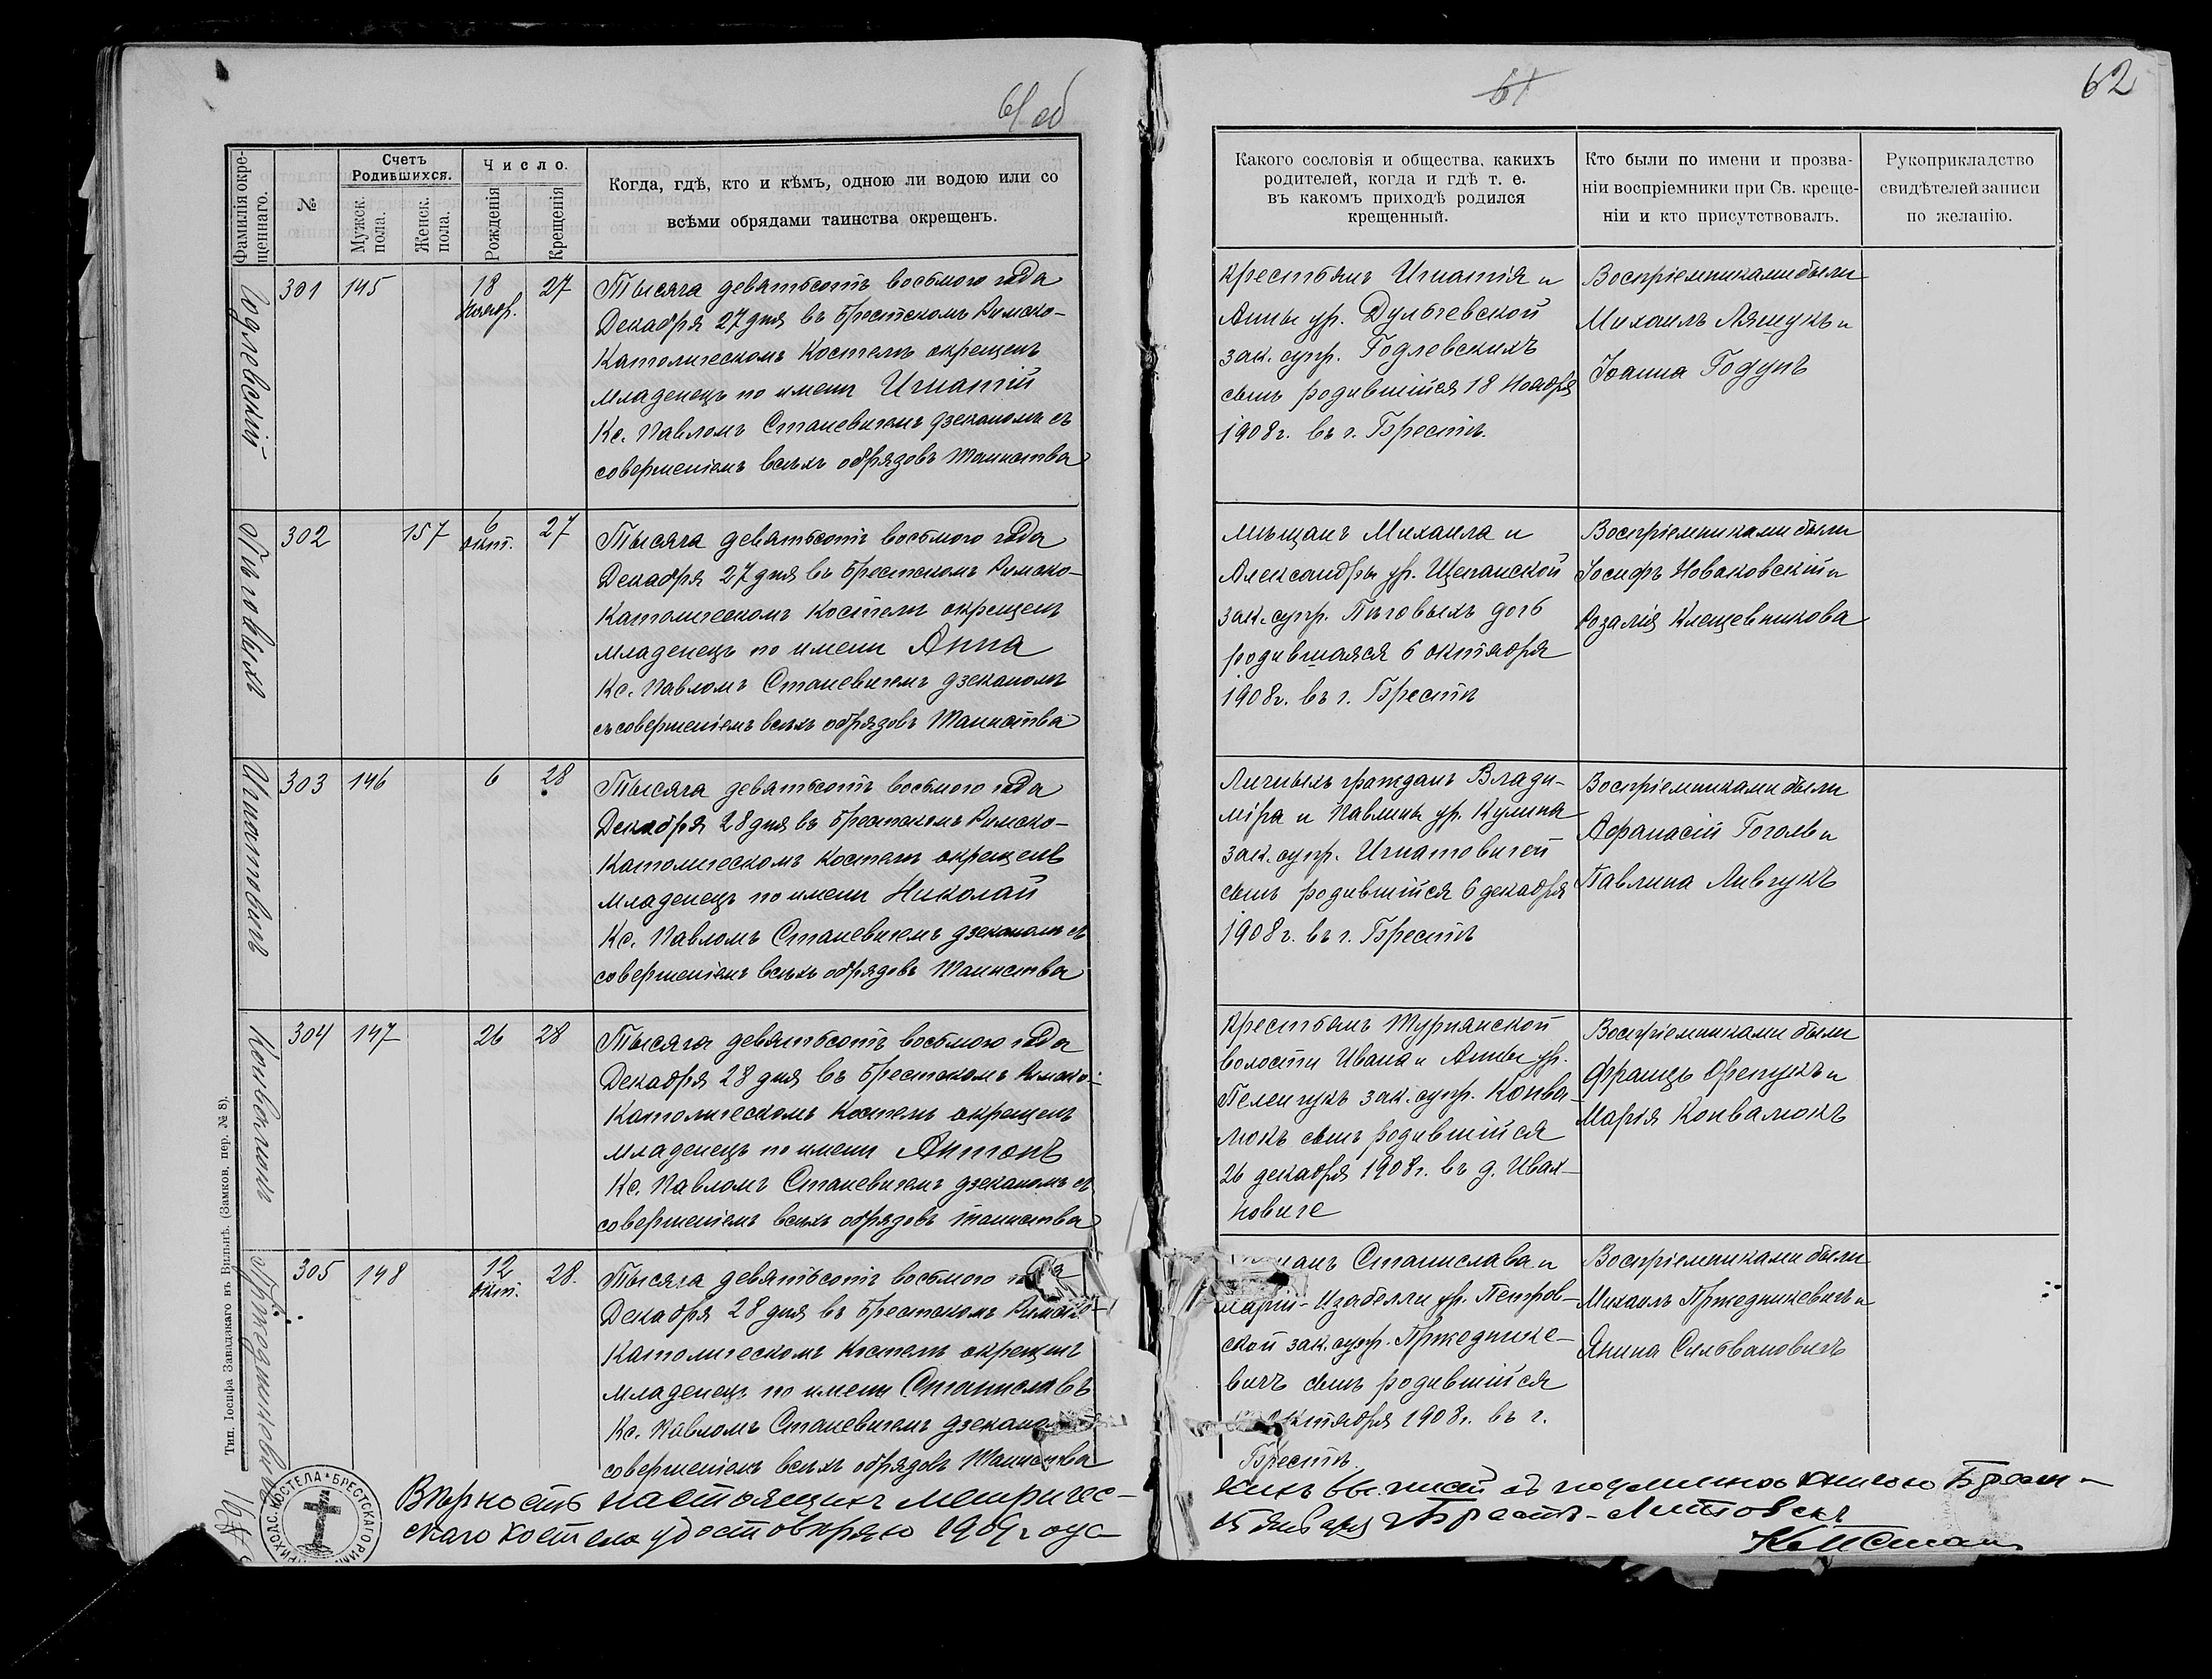 61 об
Фамилія окре-
щеннаго.
№
Счетъ
Родившихся.
Мужск.
пола.
Женск.
пола.
Число.
Рожденія
Крещенія
Когда, гдѣ, кто и кѣмъ, одною ли водою или со
всѣми обрядами таинства окрещенъ.
Годлевскій
301
145
18
Ноябр.
27
Тысяча девятьсотъ восьмого года
Декабря 27 дня въ Брестскомъ Римско-
Католическомъ Костелѣ окрещенъ
младенецъ по имени Игнатій
Кс. Павломъ Станевичемъ дзеканомъ съ
совершеніемъ всѣхъ обрядовъ Таинства
Пѣговыхъ
302
157
6
окт.
27
Тысяча девятьсотъ восьмого года
Декабря 27 дня въ Брестскомъ Римско-
Католическомъ Костелѣ окрещенъ
младенецъ по имени Анна
Кс. Павломъ Станевичемъ дзеканомъ
съ совершеніемъ всѣхъ обрядовъ Таинства
Игнатовичъ
303
146
6
28
Тысяча девятьсотъ восьмого года
Декабря 28 дня въ Брестскомъ Римско-
Католическомъ Костелѣ окрещенъ
младенецъ по имени Николай
Кс. Павломъ Станевичемъ дзеканомъ съ
совершеніемъ всѣхъ обрядовъ Таинства
Конвалюкъ
304
147
26
28
Тысяча девятьсотъ восьмого года
Декабря 28 дня въ Брестскомъ Римско-
Католическомъ Костелѣ окрещенъ
младенецъ по имени Антонъ
Кс. Павломъ Станевичемъ дзеканомъ съ
совершеніемъ всѣхъ обрядовъ таинства
Пржедникевичъ
305
148
12
Окт.
28.
Тысяча девятьсотъ восьмого года
Декабря 28 дня въ Брестскомъ Римско-
Католическомъ Костелѣ окрещенъ
младенецъ по имени Станиславъ
Кс. Павломъ Станевичемъ дзеканомъ
совершеніемъ всѣхъ обрядовъ Таинства
Тип. Іосифа Завадзкаго въ Вильнѣ. (Замков. пер. № 8).
КОСТЕЛА * БРЕСТСКАГО РИМ
ПРИХОДС.
Вѣрность настоящихъ метричес-
скаго костела удостовѣряю 1909 года
61
62
Какого сословія и общества, какихъ
родителей, когда и гдѣ т. е.
въ какомъ приходѣ родился
крещенный.
Кто были по имени и прозва-
ніи воспріемники при Св. креще-
ніи и кто присутствовалъ.
Рукоприкладство
свидѣтелей записи
по желанію.
Крестьянъ Игнатія и
Анны ур. Дульчевской
зак. супр. Годлевскихъ
сынъ родившійся 18 Ноября
1908 г. въ г. Брестѣ.
Воспріемниками были
Михаилъ Ляшукъ и
Іоанна Годунъ
Мѣщанъ Михаила и
Александры ур. Щепанской
зак. супр. Пѣговыхъ дочь
родившаяся 6 октября
1908 г. въ г. Брестѣ
Воспріемниками были
Іосифъ Новаковскій и
Розалія Клещевникова
Личныхъ гражданъ Влади-
міра и Павлины ур. Кулина
зак. супр. Игнатовичей
сынъ родившійся 6 декабря
1908 г. въ г. Брестѣ
Воспріемниками были
Афанасій Гоголь и
Павлина Ливчукъ
Крестьянъ Турнянской
волости Ивана и Анны ур.
Пелепчукъ зак. супр. Конва-
люкъ сынъ родившійся
26 декабря 1908 г. въ д. Ивах-
новиче
Воспріемниками были
Францъ Орепукъ и
Марія Конвалюкъ
Станислава и
Маріи-Изабелли ур. Петров-
ской зак. супр. Пржеднике-
вичъ сынъ родившійся
октября 1908 г. въ г.
Брестѣ
Воспріемниками были
Михаилъ Пржедникевичъ и
Янина Сильвановичъ
съ подлинною книгою Брест-
января г. Брестъ-Литовскъ